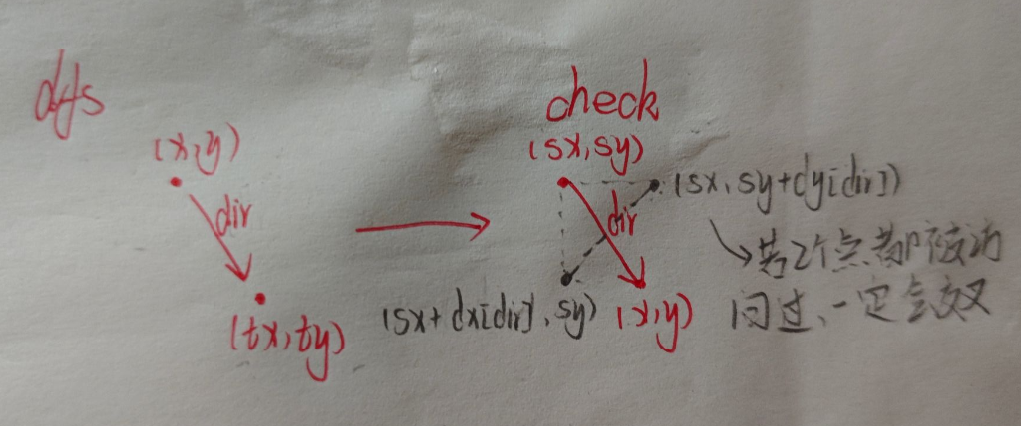 dfs
(x,y)
dir
(tx,ty)
check
(sx,sy)
(sx,sy+dy[dir])
dir
(sx+dx[dir],sy)
(x,y)
若2个点都被访
问过、一定会交叉